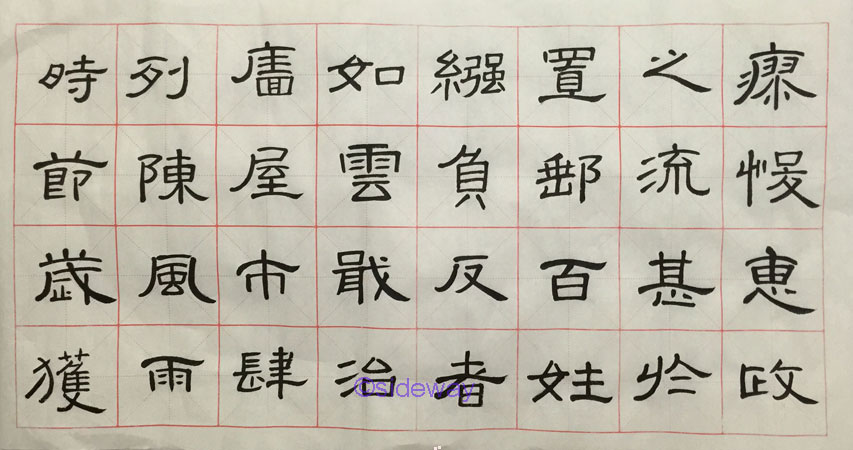 瘳悛惠政
之流甚於
置郵百姓
繦負反者
如雲戢治
廧屋市肆
列陳風雨
時節歲獲
©sideway